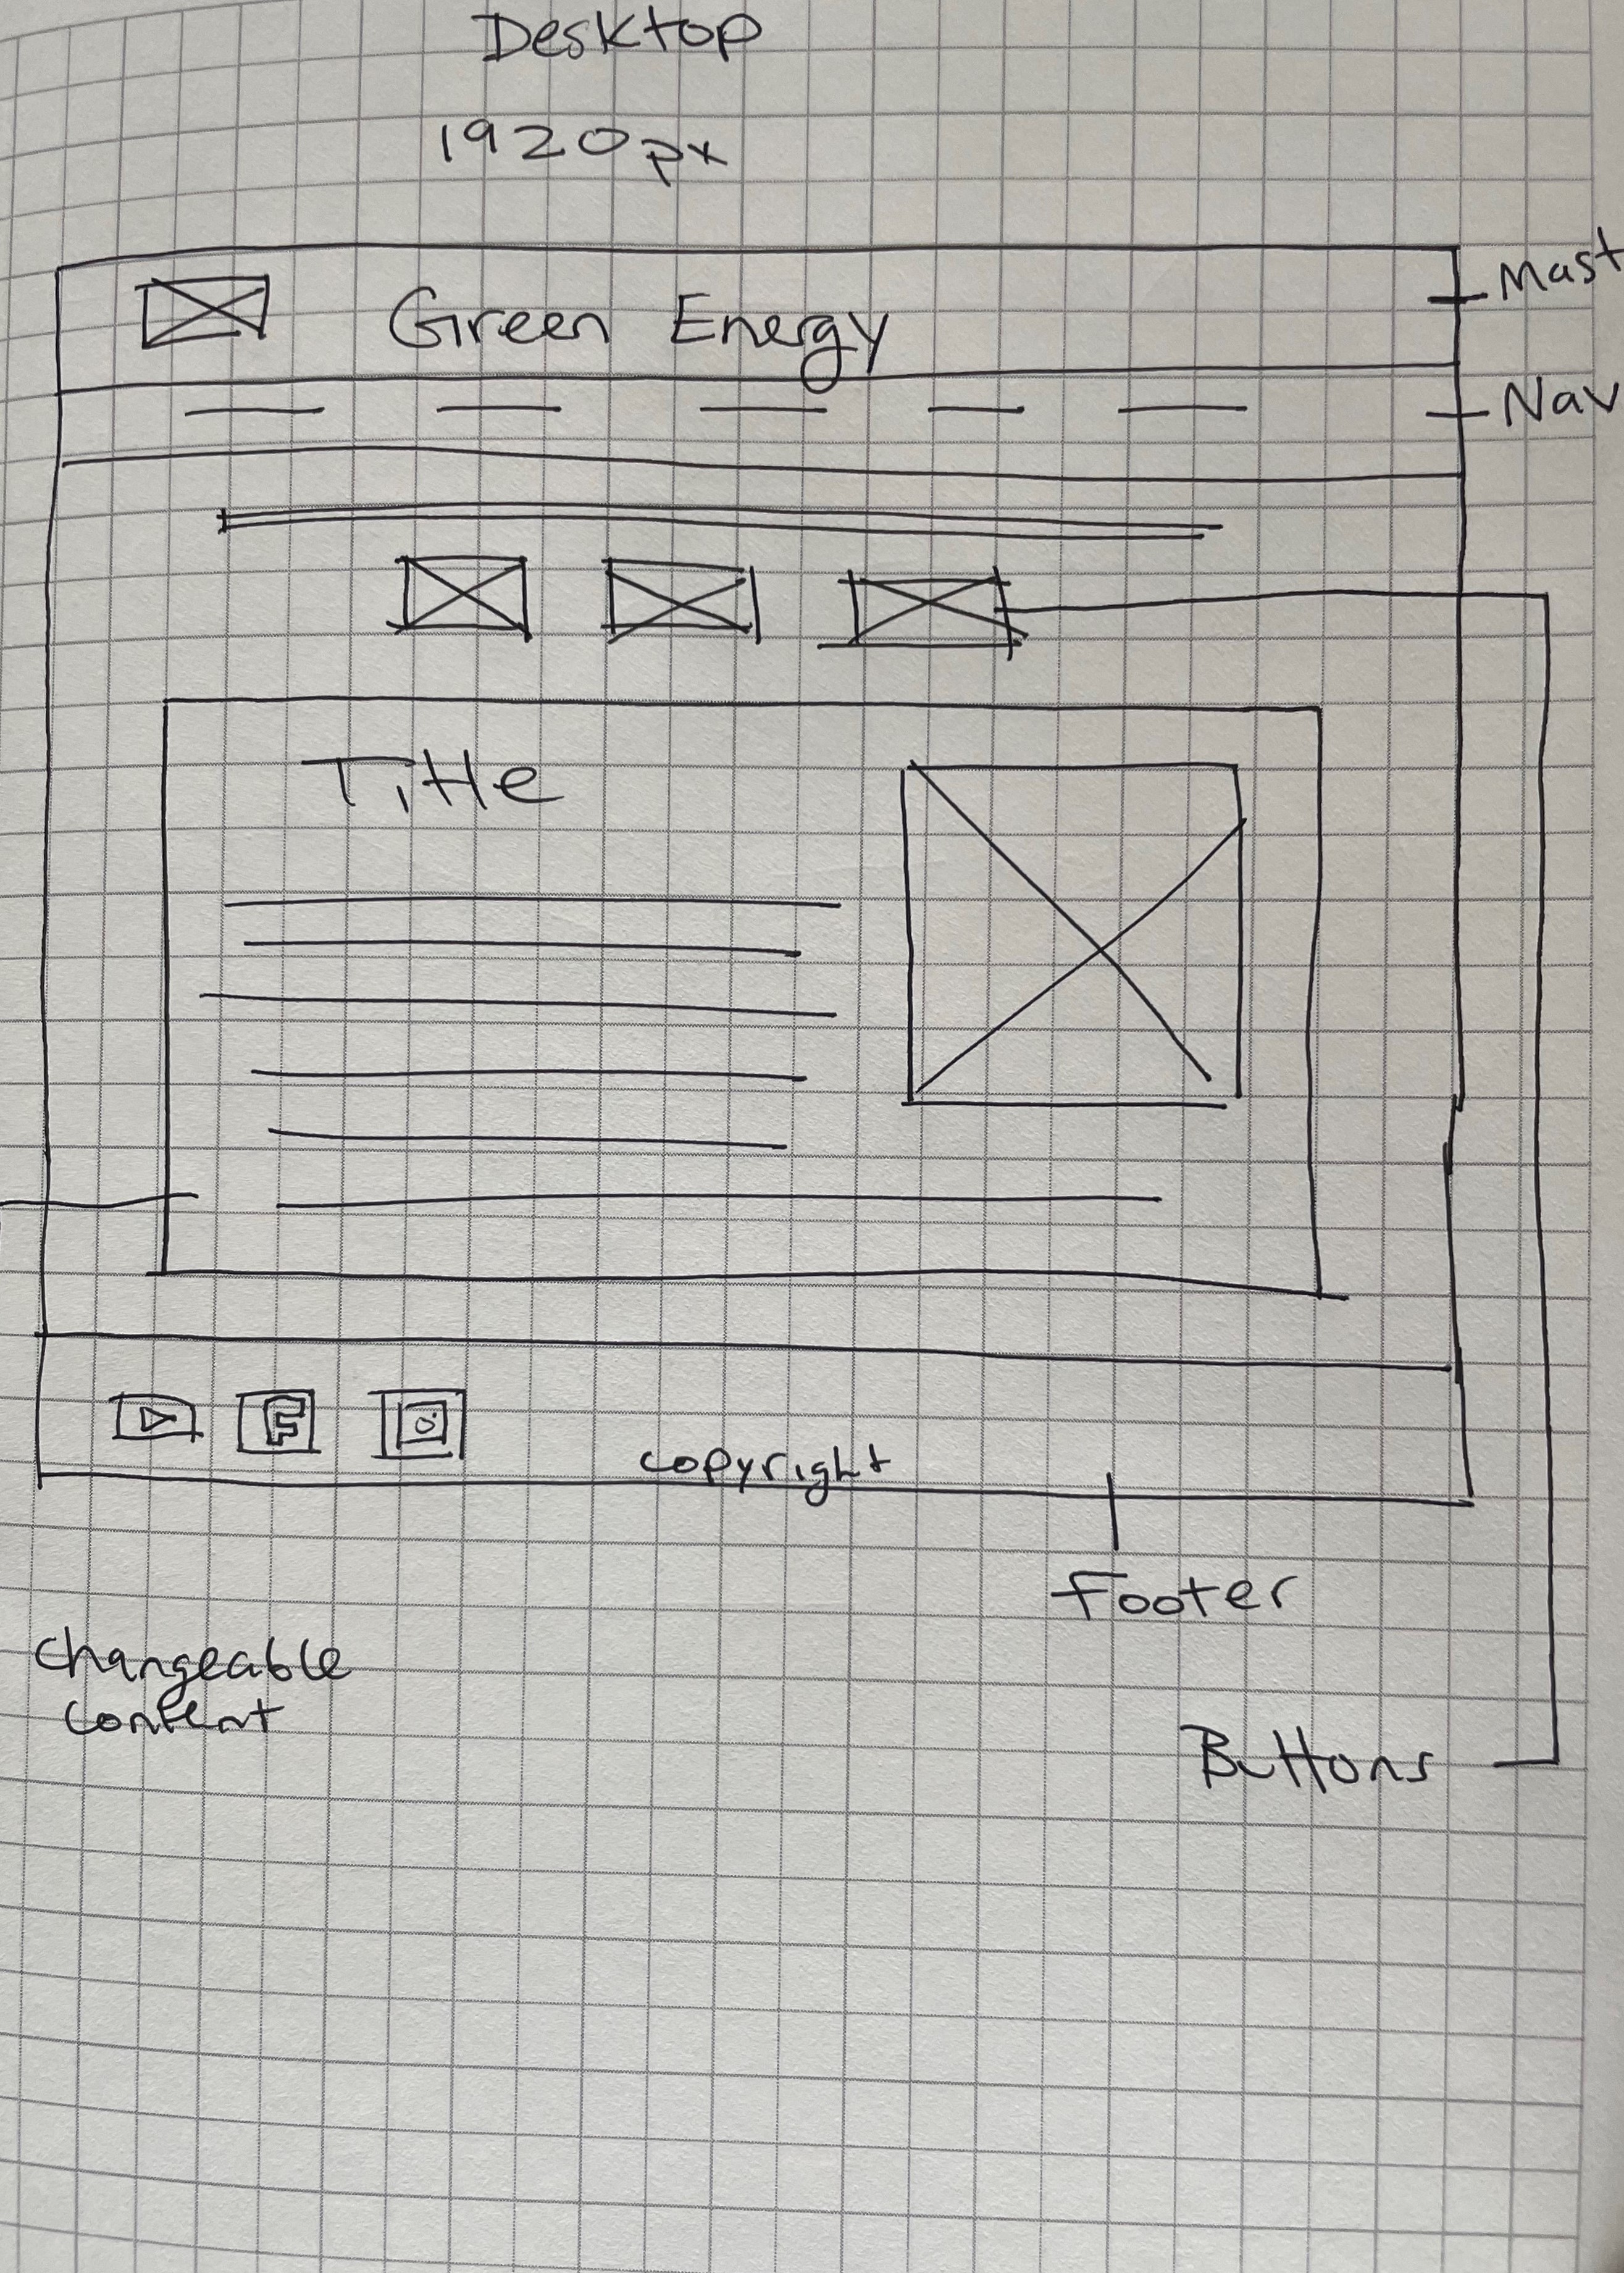 Desktop
1920px
Mast
Green Energy
Nav
Title
F
copyright
Footer
Changeable
content
Buttons